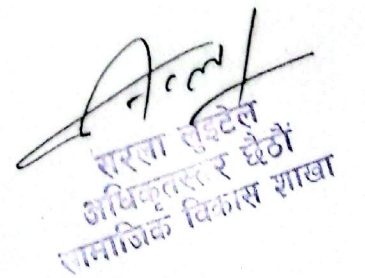 सरला लुइटेल
अधिकृतस्तर छैठौं
सामाजिक विकास शाखा